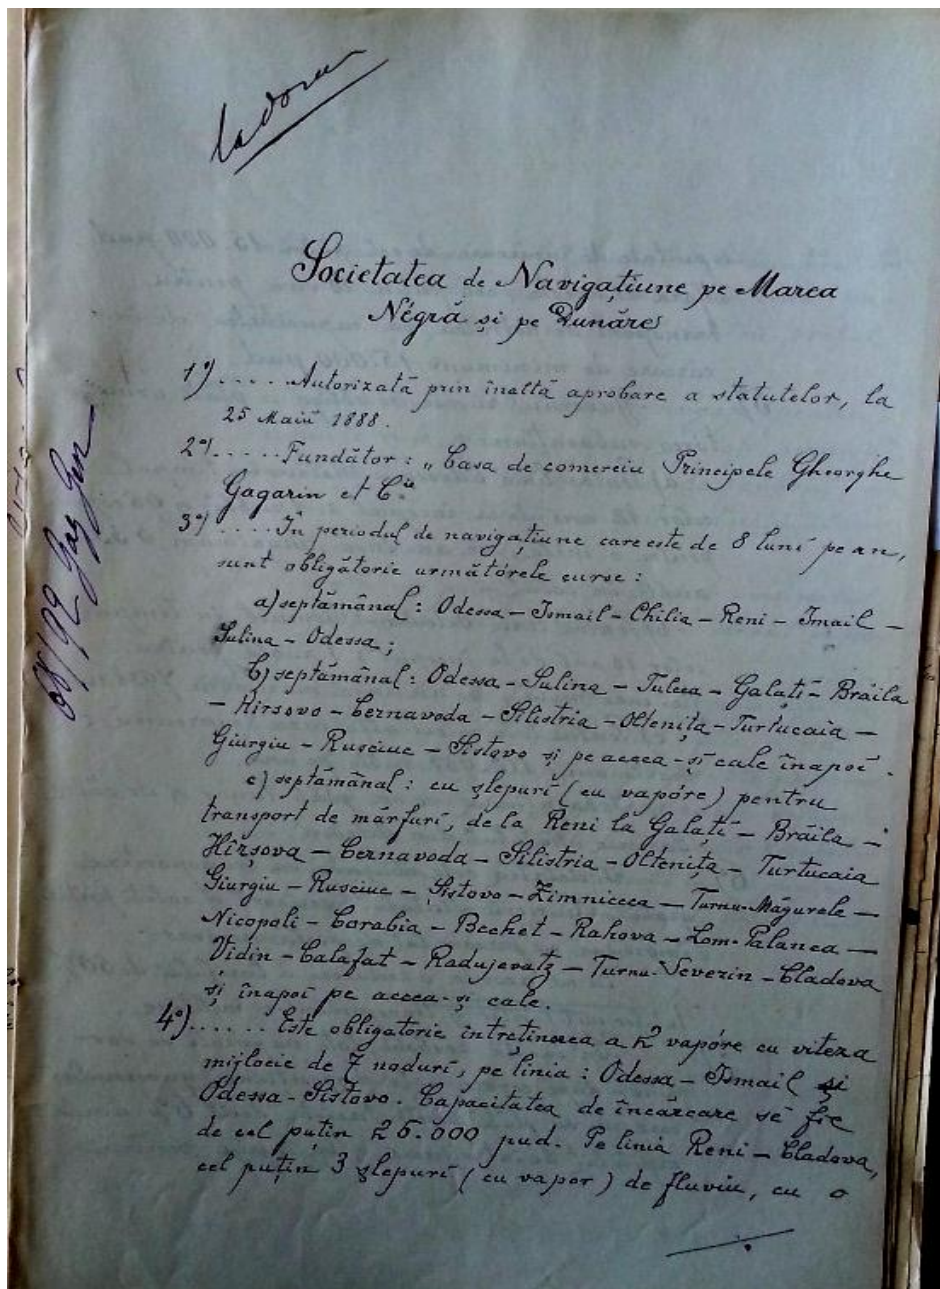 Societatea de Navigațiune pe Marea
Négră și pe Dunăre
1º) .... Autorizată prin înaltă aprobare a statutelor, la
25 Maiŭ 1888.
2º) ..... Fundător: „Casa de comerciu Principele Gheorghe
Gagarin et C.ie
3º) .... În periodul de navigațiune care este de 8 lunĭ pe an,
sunt obligătorie următórele curse:
a) septămânal: Odessa – Ismail – Chilia – Reni – Ismail –
Sulina – Odessa;
b) septămânal: Odessa – Sulina – Tulcea – Galațĭ – Brăila
– Hirsovo – Cernavoda – Silistria – Oltenița – Turtucaia –
Giurgiu – Rusciuc – Sistovo și pe aceea-șĭ cale înapoĭ.
c) septămânal: cu șlepurĭ (cu vapóre) pentru
transport de mărfurĭ, de la Reni la Galațĭ – Brăila –
Hîrșova – Cernavoda – Silistria – Oltenița – Turtucaia
Giurgiu – Rusciuc – Șistovo – Zimnicea – Turnu-Măgurele –
Nicopoli – Corabia – Bechet – Rahova – Lom-Palanca –
Vidin – Calafat – Radujevatz – Turnu-Severin – Cladova
și înapoĭ pe aceea-șĭ cale.
4º) ...... Este obligatorie întreținerea a 2 vapóre cu viteza
mijlocie de 7 nodurĭ, pe linia: Odessa – Ismail și
Odessa – Sistovo. Capacitatea de încărcare sĕ fie
de cel puțin 25.000 pud. Pe linia Reni – Cladova,
cel puțin 3 șlepurĭ (cu vapor) de fluviu, cu o